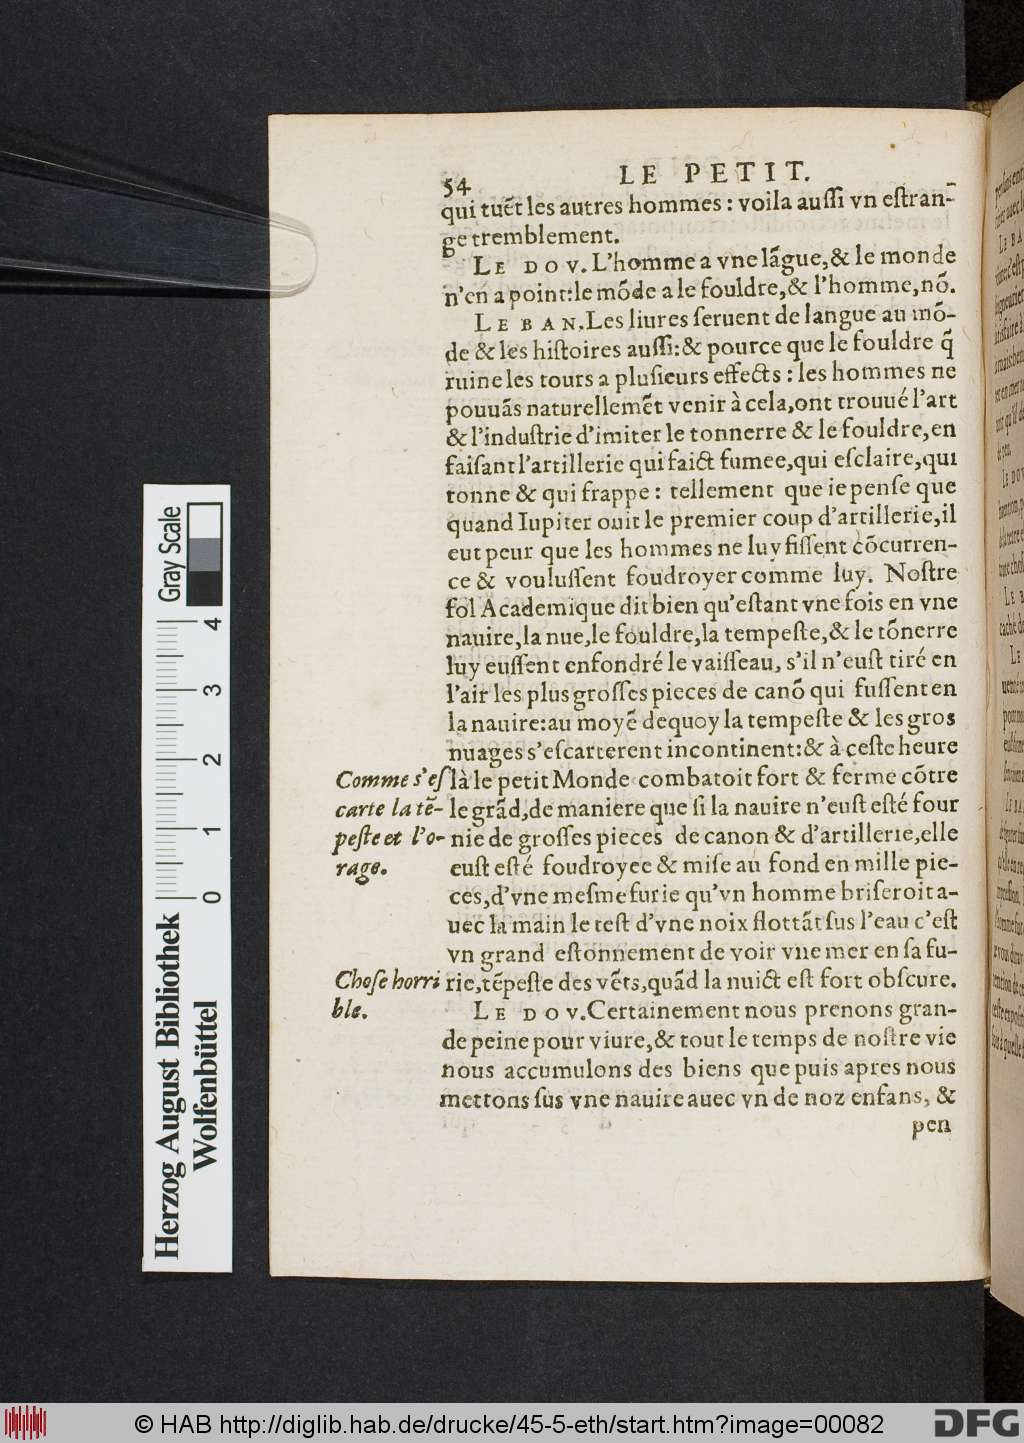 54
LE PETIT.
qui tuẽt les autres hommes : voila auſſi vn eſtran-
ge tremblement.
LE DOV. L'homme a vne lãgue,& le monde
n'en a point:le mõde a le fouldre,& l'homme,nõ.
LE BAN. Les liures ſeruent de langue au mõ-
de & les hiſtoires auſſi:& pource que le fouldre q̃
ruine les tours a pluſieurs effects : les hommes ne
pouuãs naturellemẽt venir à cela,ont trouué l'art
& l'induſtrie d'imiter le tonnerre & le fouldre,en
faiſant l'artillerie qui faict fumee,qui eſclaire,qui
tonne & qui frappe : tellement que ie penſe que
quand Iupiter ouit le premier coup d'artillerie,il
eut peur que les hommes ne luy fiſſent cõcurren-
ce & vouluſſent foudroyer comme luy. Noſtre
fol Academique dit bien qu'eſtant vne fois en vne
nauire,la nue,le fouldre,la tempeſte,& le tõnerre
luy euſſent enfondré le vaiſſeau, s'il n'euſt tiré en
l'air les plus groſſes pieces de canõ qui fuſſent en
la nauire:au moyẽ dequoy la tempeſte & les gros
nuages s'eſcarterent incontinent:& à ceſte heure
là le petit Monde combatoit fort & ferme cõtre
le grãd,de maniere que ſi la nauire n'euſt eſté four
nie de groſſes pieces de canon & d'artillerie,elle
euſt eſté foudroyee & miſe au fond en mille pie-
ces,d'vne meſme furie qu'vn homme briſeroit a-
uec la main le teſt d'vne noix flottãt ſus l'eau c'eſt
vn grand eſtonnement de voir vne mer en ſa fu-
rie,tẽpeſte des vẽts,quãd la nuict eſt fort obſcure.
LE DOV. Certainement nous prenons gran-
de peine pour viure,& tout le temps de noſtre vie
nous accumulons des biens que puis apres nous
mettons ſus vne nauire auec vn de noz enfans, &
pen
Comme s'eſ
carte la tẽ-
peſte et l'o-
rage.
Choſe horri
ble.
Gray Scale
0 1 2 3 4
Herzog August Bibliothek
Wolfenbüttel
© HAB http://diglib.hab.de/drucke/45-5-eth/start.htm?image=00082
DFG